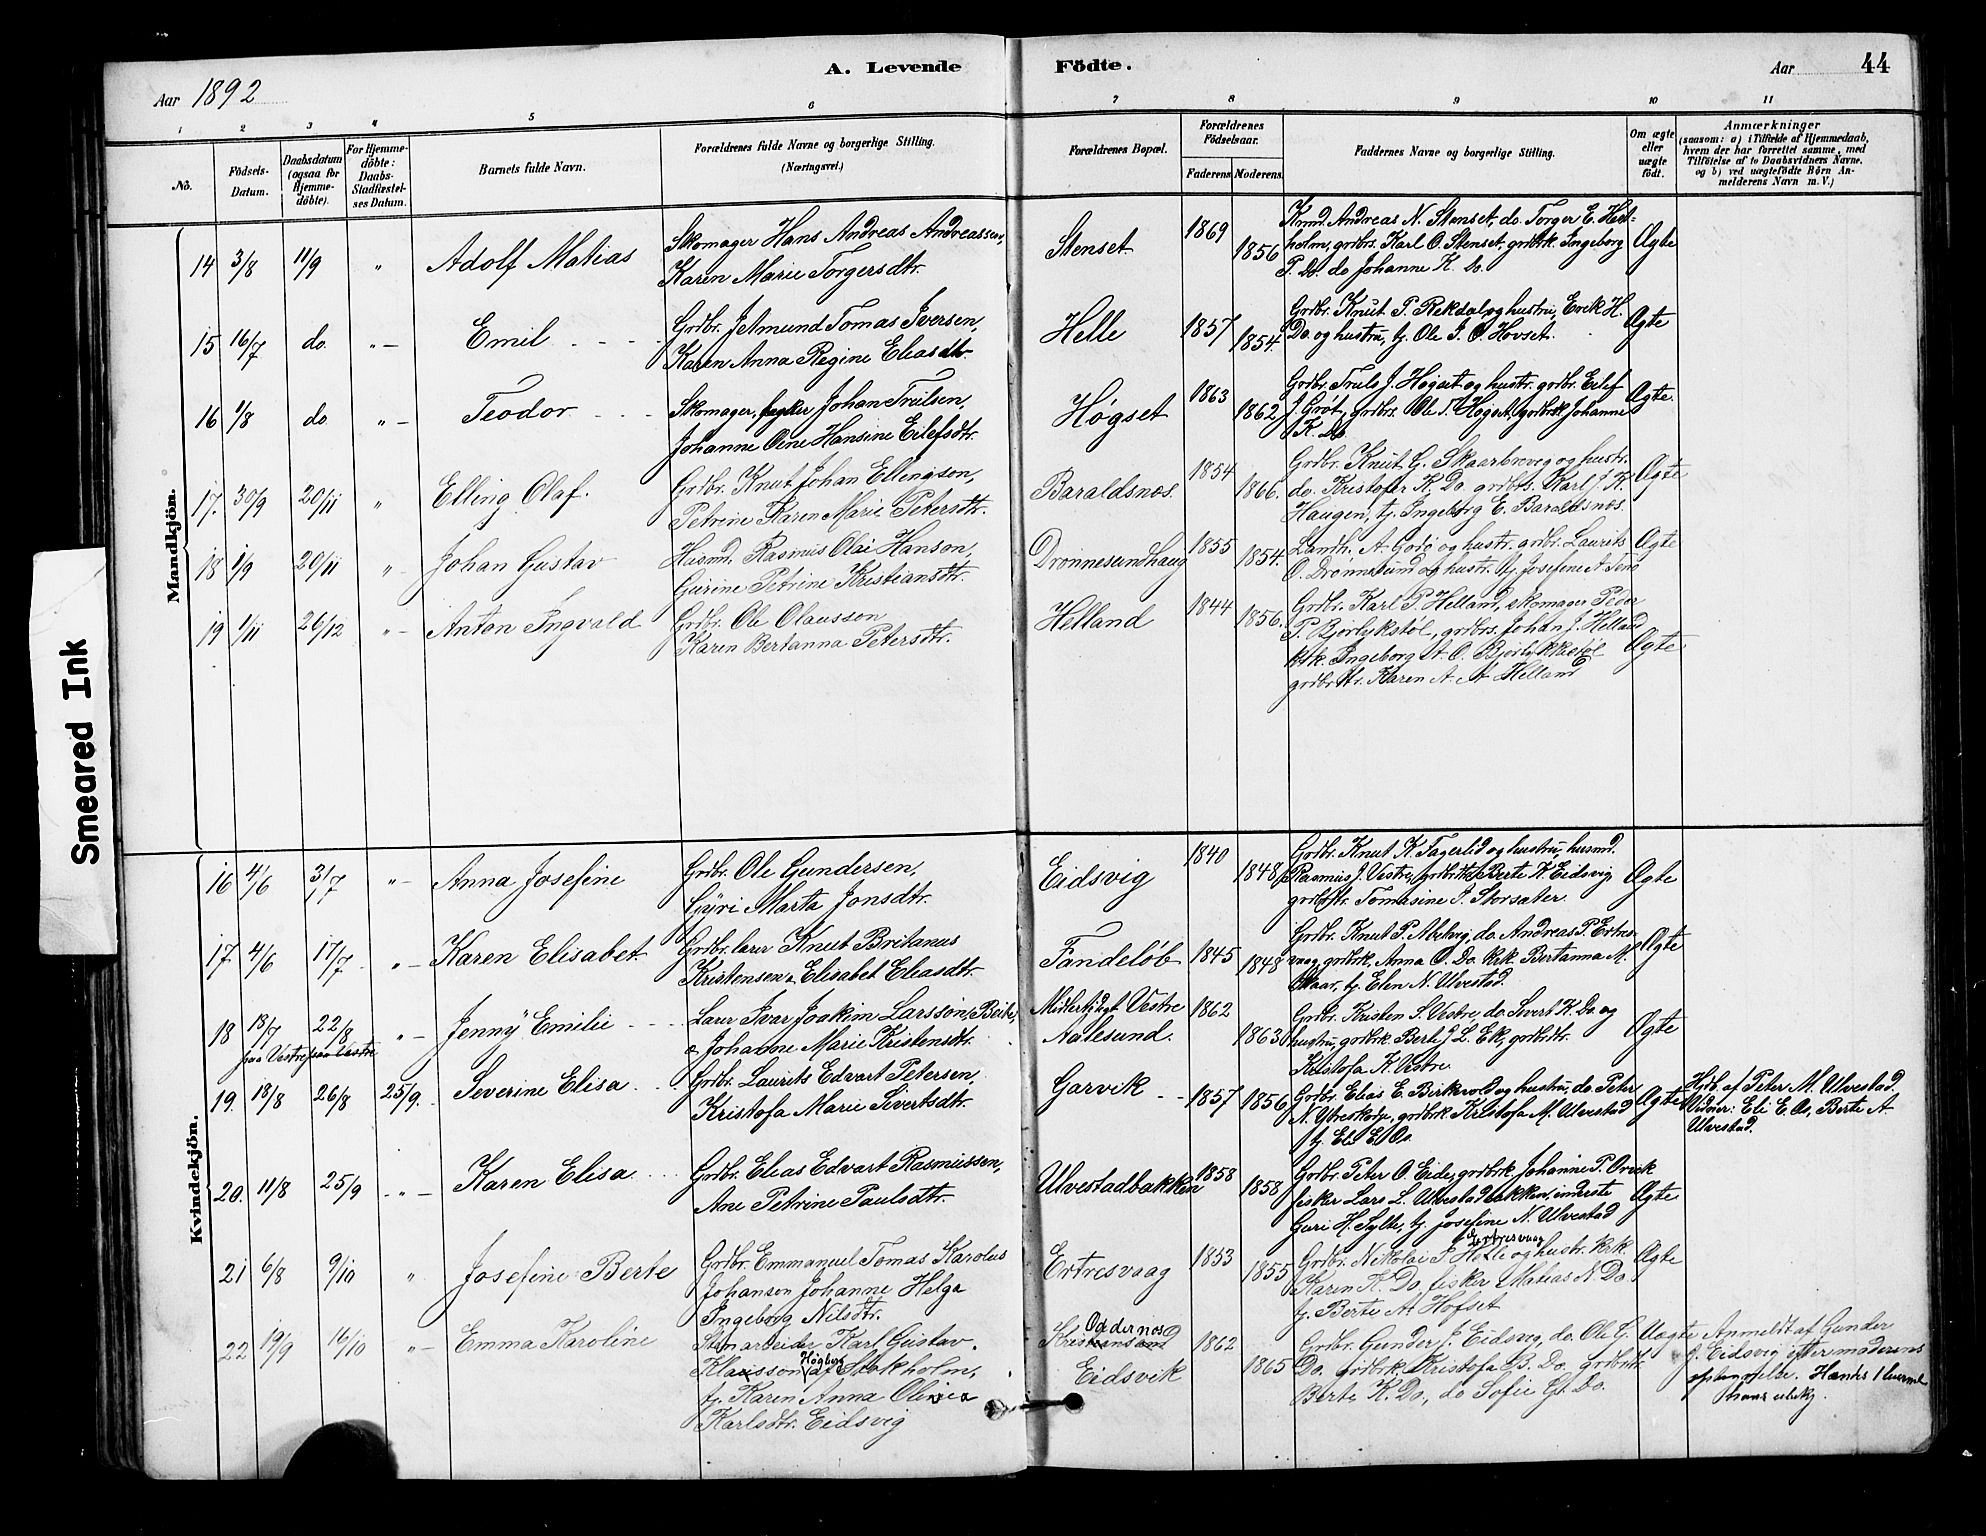 A. Levende Födte.
Aar 1892
Aar 44
1 2 3 4 5 6 7 8 9 10 11
No.
Födsels-Datum.
Daabsdatum (ogsaa for Hjemmedöbte).
For Hjemmedöbte: Daabs-Stadfæstelses Datum.
Barnets fulde Navn.
Forældrenes fulde Navne og borgerlige Stilling. (Næringsvei.)
Forældrenes Bopæl.
Forældrenes Födselsaar.
Faderens Moderens
Faddernes Navne og borgerlige Stilling.
Om ægte eller uægte födt.
Anmærkninger
(saasom: a) i Tilfælde af Hjemmedaab, hvem der har forrettet samme, med Tilföielse af to Daabsvidners Navne. og b) ved uægtefödte Börn Anmelderens Navn m. V.)
Smeared Ink
Mandkjön.
14 3/8 11/9 " Adolf Matias
Skomager Hans Andreas Andreassen,
Karen Marie Torgersdtr.
Stenset 1869 1856
Kmd. Andreas N. Stenset, do. Torger E. Hest-
holm, grdbrs. Karl O. Stenset, grdbrk. Ingeborg
P. Do. do Johanne K. Do.
Ægte
15 16/7 do. "– Emil
Grdbr. Jetmund Tomas Iversen,
Karen Anna Regine Eliasdtr
Helle 1857 1854.
Grdbr. Knut P. Rekdal og hustru, Erik H.
Do og hustru, tj. Ole J. O. Hovset.
Ægte
16 1/8 do. "– Teodor
Skomager, Johan Trulsen,
Johanne Oline Hansine Eilefsdtr.
Høgset 1863 1862
Grdbr. Truls J. Høgset og hustr. grdbr. Eilef
J. Grøt, grdbrs. Ole T. Høgset, grdbrk Johanne
K. Do
Ægte.
17. 30/9 20/11 " Elling Olaf.
Grdbr. Knut Johan Ellingson,
Petrine Karen Marie Petersdtr.
Baraldsnes. 1854 1866.
Grdbr. Knut G. Skaarbrevig og hustr.
do. Kristofer K. Do. grdbrs. Karl J. K.
Haugen, tj. Ingeborg E. Baraldsnes.
Ægte
18 1/9 20/11 "– Johan Gustav
Husmd. Rasmus Olai Hanson,
Gurine Petrine Kristiansdtr.
Drønnesundhaug 1855 1854.
Landh. A. Godø og hustr. grdbr. Laurits
O. Drønnesund og hustr. tj. Josefine A
Ægte
19 1/11 26/12 "– Anton Ingvald
Grdbr. Ole Olausson
Karen Bertanna Petersdtr.
Helland 1844 1856.
Grdbr. Karl P. Helland, skomager Peder
P. Bjørlykstøl, grdbrs. Johan J. Helland
krk. Ingeborg A O. Bjørlykkestøl
grdbrdtr. Karen A. A Helland
Ægte
Kvindekjön.
16 4/6 3/7 "– Anna Josefine
Grdbr. Ole Gundersen,
Gyri Marta Jonsdtr.
Eidsvig 1840 1848
Grdbr. Knut K. Fagerlid og hustru, husmd.
Rasmus J. Vestre, grdbrk Berte K. Eidsvig
grdbrdtr. Tomasine J. Storsæter.
Ægte
17 4/6 17/7 "– Karen Elisabet
Grdbr. lærer Knut Britanus
Kristensen & Elisabet Eliasdtr.
Tandeløb 1845 1848
Grdbr. Knut P. Abelvig, do. Andreas P. Ertres-
vaag, grdbrk. Anna O. Do. krk. Bertanna M.
Skaar, tj. Elen N. Ulvestad.
Ægte
18 18/7 22/8 "– Jenny Emilie
paa Vestre paa Vestre
Lærer Ivar Joakim Larsson Beite,
& Johanne Marie Kristensdtr.
Midlertidigt Vestre
Aalesund. 1862 1863
Grdbr. Kristen S. Vestre, do. Sivert K. Do. og
hustru, grdbrk. Berte J. L. Ek, grdbrdtr.
Kristofa K. Vestre.
Ægte
19. 18/8 26/8 25/9. Severine Elisa
Grdbr. Laurits Edvart Petersen,
Kristofa Marie Sivertsdtr.
Garvik 1857 1856
Grdbr. Elias E. Birkevold og hustru, do. Peter
N. Ytreskorpe, grdbrk Kristofa M. Ulvestad
tj. Eli E. Os.
Ægte
Hjdb. af Peter M. Ulvestad.
Vidner: Eli E. Os, Berte A.
Ulvestad.
20. 11/8 25/9 "– Karen Elisa
Grdbr. Elias Edvart Rasmussen,
Ane Petrine Paulsdtr.
Ulvestadbakken 1858 1858
Grdbr. Peter O. Eide, grdbrk. Johanne P. Orvik
fisker Lars L. Ulvestadbakken, inderste
Guri H. Sylte, tj. Josefine N. Ulvestad
Ægte
21 6/8 9/10 " Josefine Berte
Grdbr. Emmanuel Tomas Karolus
Johanson Johanne Helga
Ingeborg Nilsdtr.
Ertresvaag 1853 1855
Ertresvaag
Grdbr. Nikolai P. Helle og hustr. krk.
Karen K. Do, fisker Matias N. Do.
tj. Berte A. Hofset
Ægte
22 19/9 16/10 "– Emma Karoline
Stenarbeider Karl Gustav
Høgberg
Klausson af Stokholm,
tj. Karen Anna Olivia
Karlsdtr. Eidsvig
Oddernes
Kristiansand
Eidsvik 1862 1865
Grdbr. Gunder J. Eidsvig, do. Ole G.
Do, grdbrk. Kristofa B. Do. grdbrdtr.
Berte K. Do., do Sofie G. Do.
Uægte
Anmeldt af Gunder
J. Eidsvig efter moderens
opgivelse. Hendes 1
hans